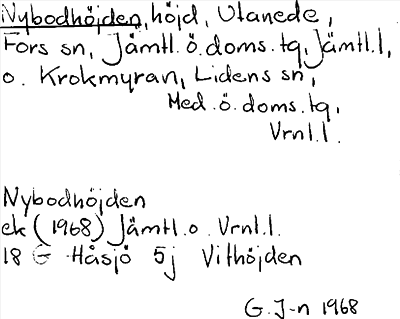 Nybodhöjden, höjd, Utanede,
Fors sn, Jämtl. ö. doms. tg, Jämtl. l,
o. Krokmyran, Lidens sn,
Med. ö. doms. tg,
Vrnl. l.
Nybodhöjden
ek (1968) Jämtl. o. Vrnl. l.
18 G Håsjö 5j Vithöjden
G. J-n 1968